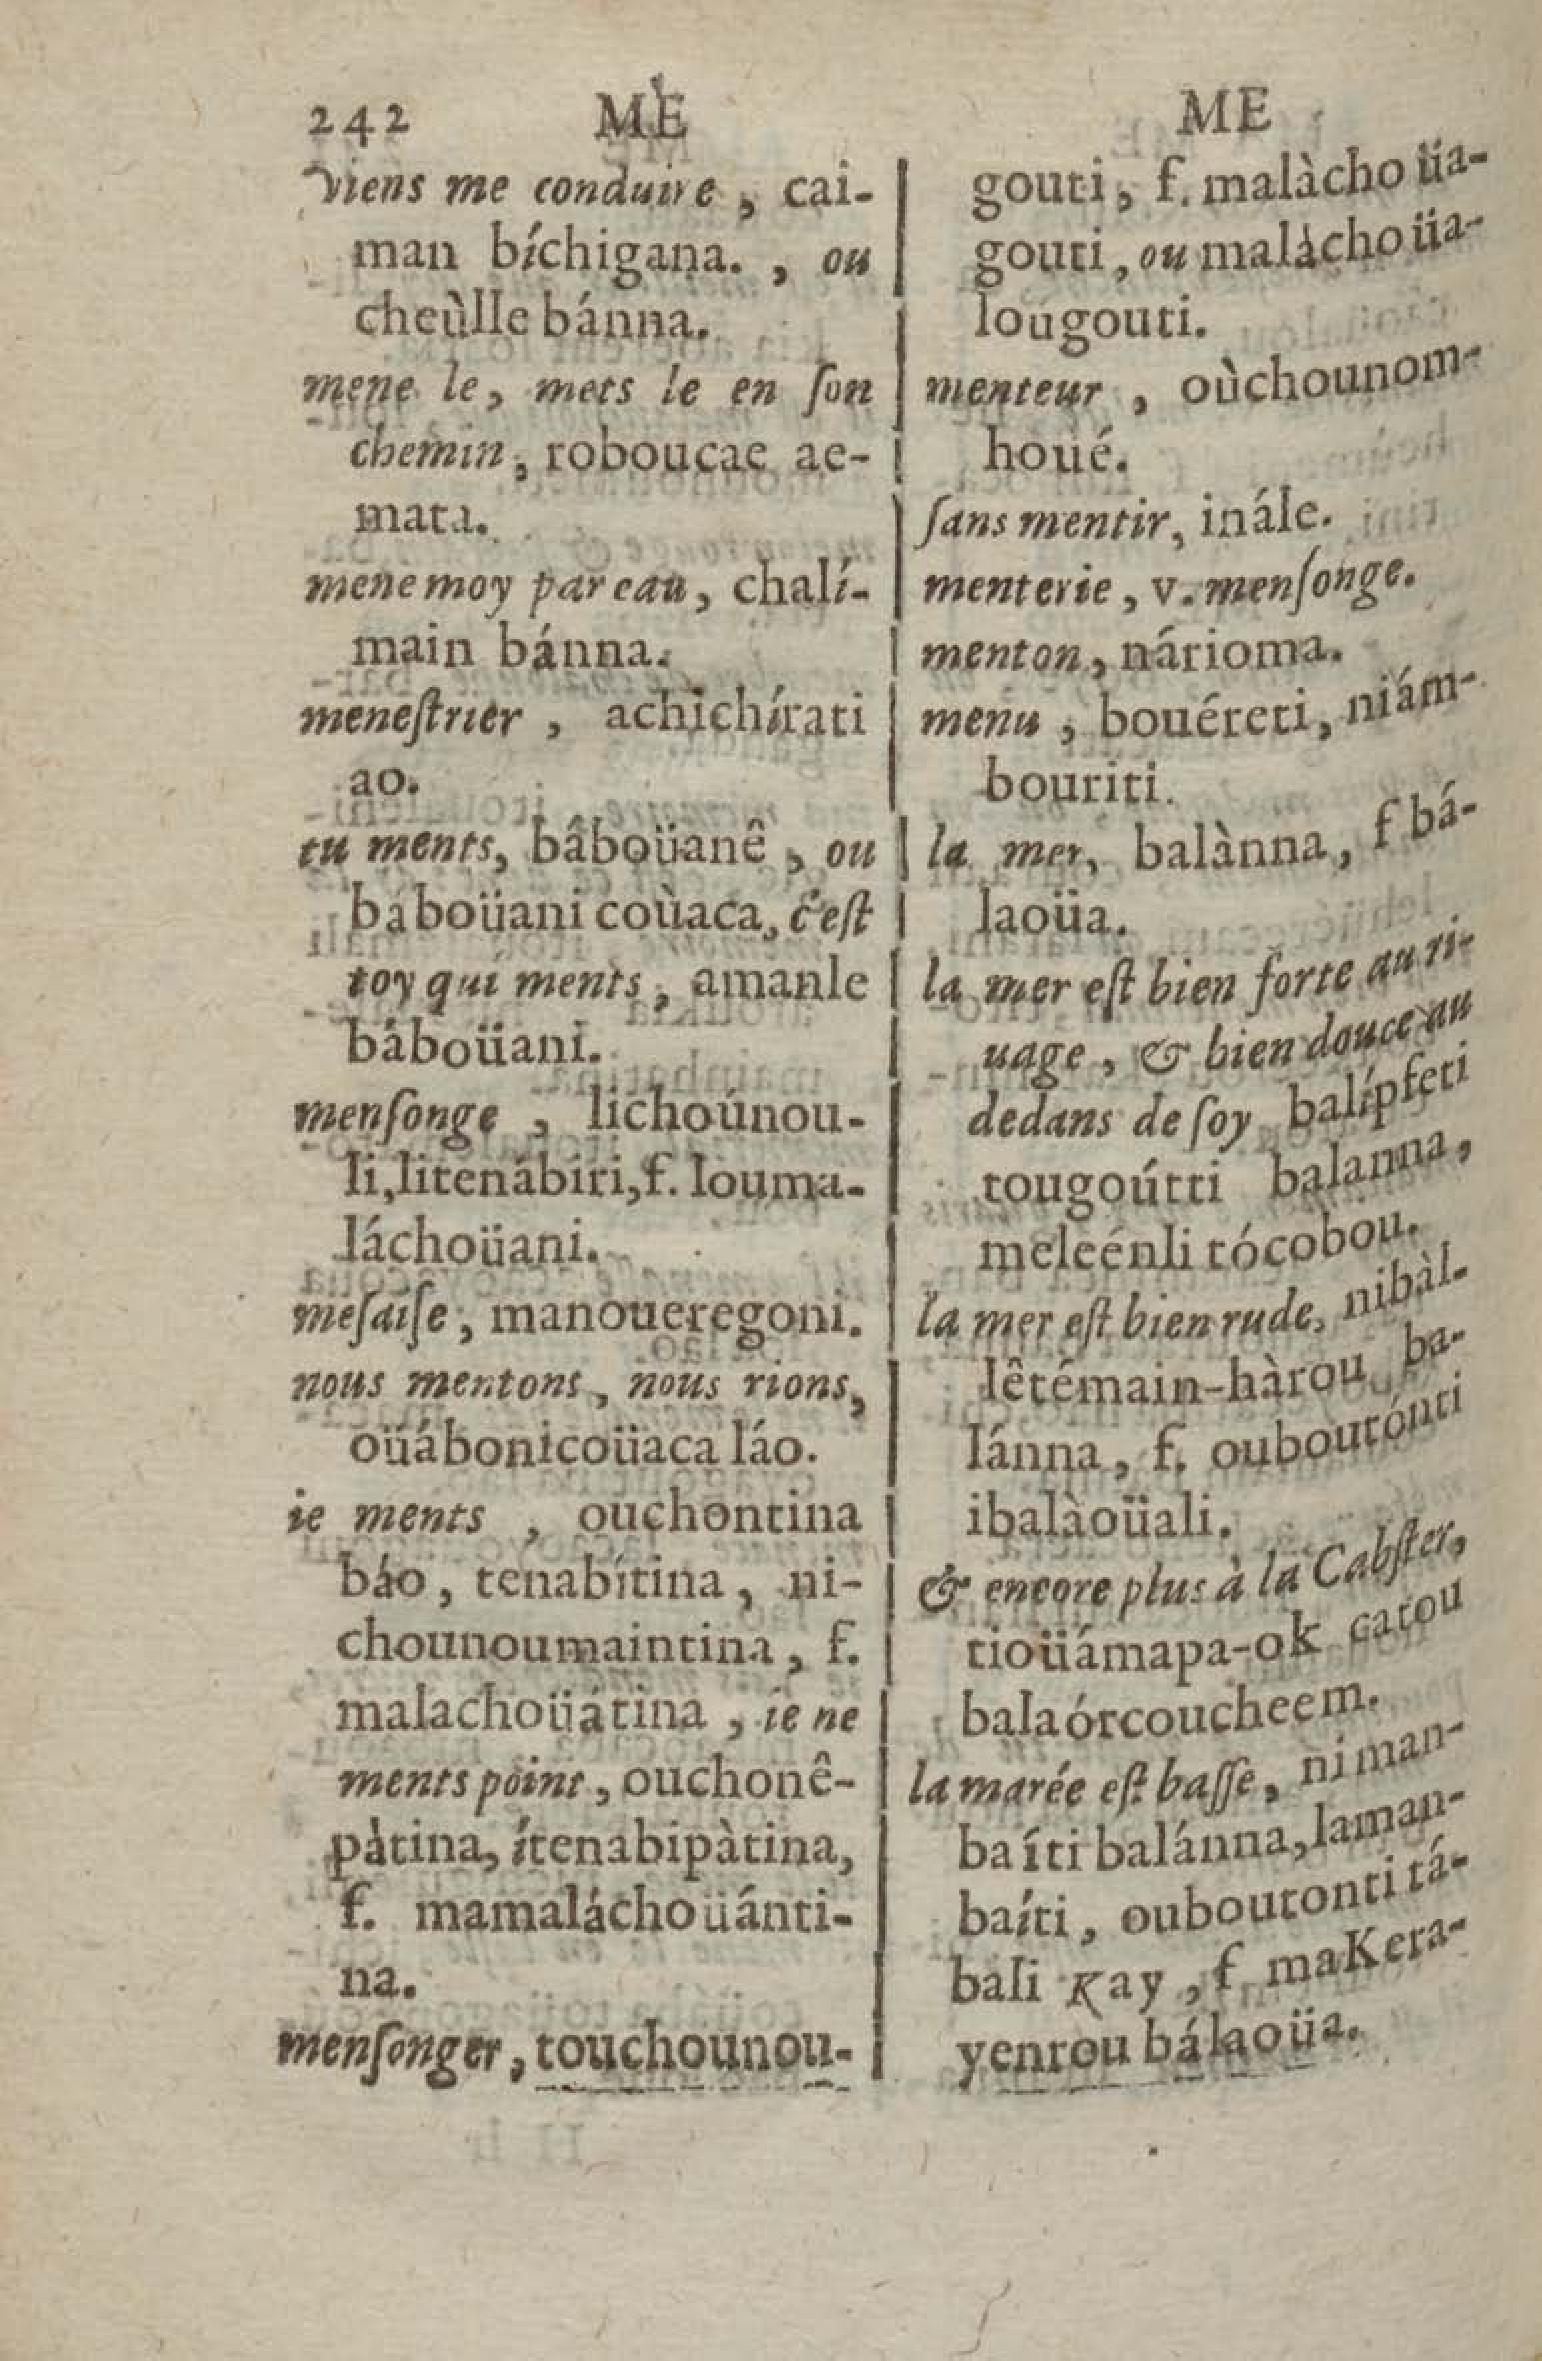 242 ME
viens me conduire, cai-
man bíchigana., ou
cheùlle bánna.
mene le, mets le en ſon
chemin, roboucae ae-
mata.
mene moy par eau, chalí-
main bánna.
meneſtrier, achichírati
ao.
tu ments, bâboüanê, ou
baboüani coùaca, c'eſt
toy qui ments, amanle
báboüani.
menſonge, lichoúnou-
li, litenábiri, f. louma-
láchoüani.
meſaiſe, manoueregoni.
nous mentons, nous rions,
oüábonicoüaca láo.
ie ments, ouchontina
báo, tenabítina, ni-
chounoumaintina, f.
malachoüátina, ie ne
ments point, ouchonê-
pàtina, ítenabipàtina,
f. mamaláchoüánti-
na.
menſonger, touchounou-
ME
gouti, f. malàchoüa-
gouti, ou maláchoüa-
lougouti.
menteur, oùchounom-
houé.
ſans mentir, inále.
menterie, v. menſonge.
menton, nárioma.
menu, bouéreti, niám-
bouriti.
la mer, balànna, f bá-
laoüa.
la mer eſt bien forte au ri-
uage, & bien douce au
dedans de ſoy balípfeti
tougoútti balanna,
meleénli tócobou.
la mer eſt bien rude, nibàl-
lêtémain-hàrou ba-
lánna, f. ouboutónti
ibalàoüali.
& encore plus à la Cabſter,
tioüámapa-ok catou
balaórcoucheem.
la marée eſt baſſe, niman-
baíti balánna, laman-
baíti, ouboutonti tá-
bali Kay, f maKera-
yenrou bálaoüa.